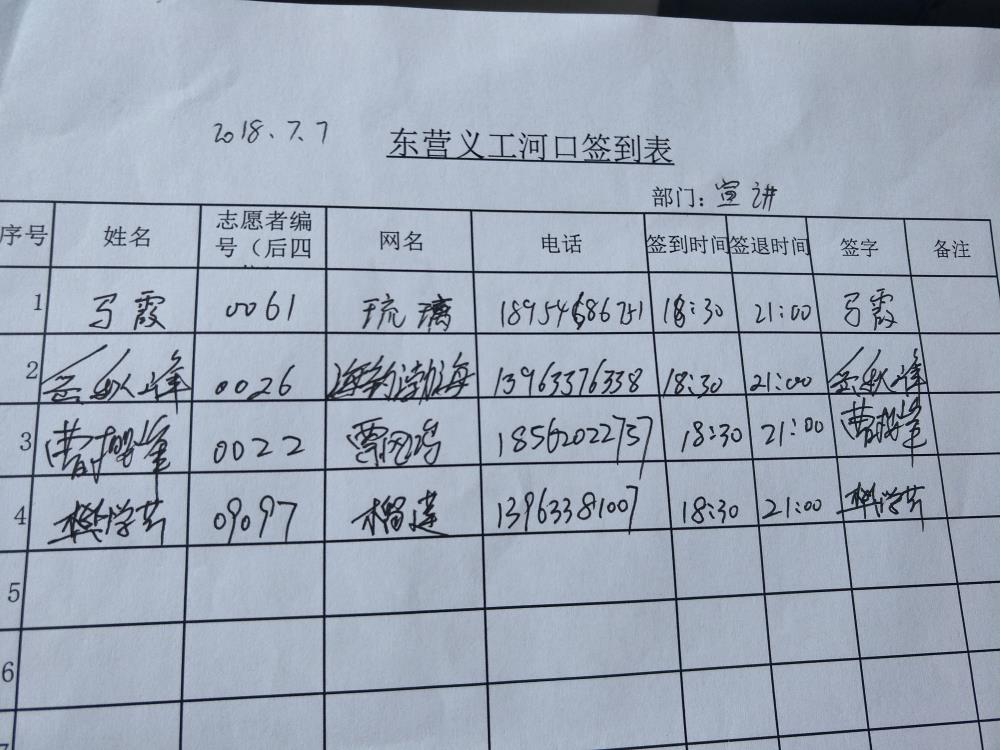 2018.7.7
东营义工河口签到表
部门: 宣讲
序号 姓名 志愿者编号（后四 网名 电话 签到时间 签退时间 签字 备注
1 马霞 0061 琉璃 18:30 21:00 马霞
2 0026 渤海 13963376338 18:30 21:00
3 曹 0022 18562022737 18:30 21:00 曹
4 樊学芳 09097 13963381007 18:30 21:00 樊学芳
5
6